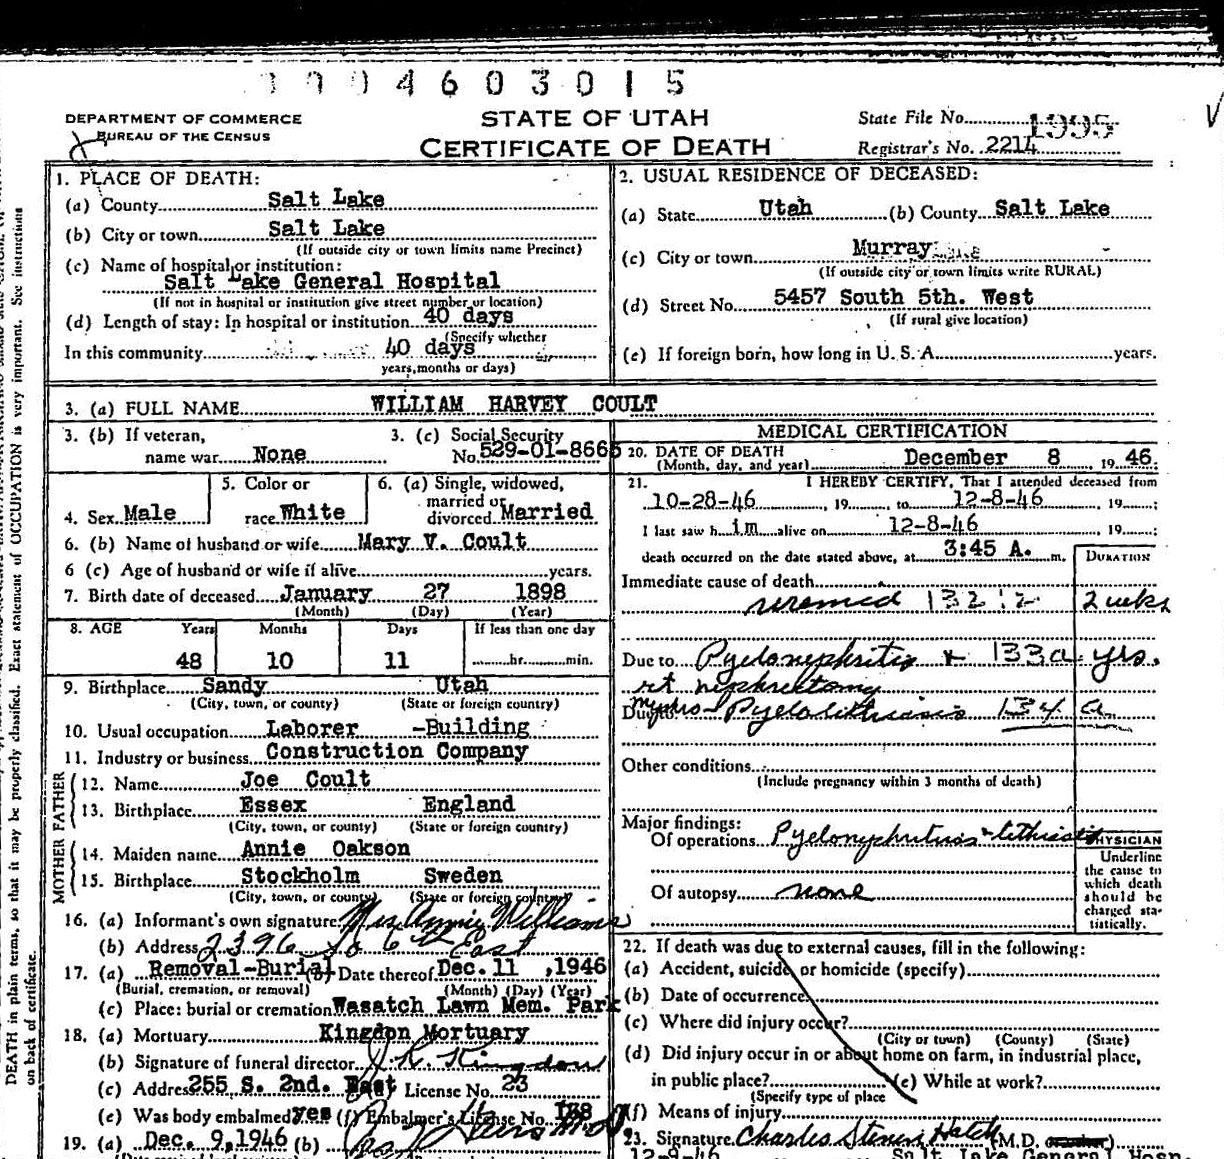 0004603015
DEPARTMENT OF COMMERCE
BUREAU OF THE CENSUS
STATE OF UTAH
CERTIFICATE OF DEATH
State File No. 1995
Registrar's No. 2214
1. PLACE OF DEATH:
(a) County Salt Lake
(b) City or town Salt Lake
(If outside city or town limits name Precinct)
(c) Name of hospital or institution:
Salt Lake General Hospital
(If not in hospital or institution give street number or location)
(d) Length of stay: In hospital or institution 40 days
(Specify whether
In this community 40 days
years, months or days)
2. USUAL RESIDENCE OF DECEASED:
(a) State Utah (b) County Salt Lake
(c) City or town Murray
(If outside city or town limits write RURAL)
(d) Street No. 5457 South 5th. West
(If rural give location)
(e) If foreign born, how long in U. S. A. years.
3. (a) FULL NAME WILLIAM HARVEY COULT
3. (b) If veteran, name war None
3. (c) Social Security No. 529-01-8665
4. Sex Male
5. Color or race White
6. (a) Single, widowed, married or divorced Married
6. (b) Name of husband or wife Mary V. Coult
6 (c) Age of husband or wife if alive years.
7. Birth date of deceased January 27 1898
(Month) (Day) (Year)
8. AGE Years Months Days If less than one day
48 10 11 hr. min.
9. Birthplace Sandy Utah
(City, town, or county) (State or foreign country)
10. Usual occupation Laborer -Building
11. Industry or business Construction Company
FATHER
12. Name Joe Coult
13. Birthplace Essex England
(City, town, or county) (State or foreign country)
MOTHER
14. Maiden name Annie Oakson
15. Birthplace Stockholm Sweden
(City, town, or county) (State or foreign country)
16. (a) Informant's own signature Mrs Annie Williams
(b) Address 2396 So 6th East
17. (a) Removal-Burial (b) Date thereof Dec. 11, 1946
(Burial, cremation, or removal) (Month) (Day) (Year)
(c) Place: burial or cremation Wasatch Lawn Mem. Park
18. (a) Mortuary Kingdon Mortuary
(b) Signature of funeral director Kingdon
(c) Address 255 S. 2nd. East License No. 23
(e) Was body embalmed? yes (f) Embalmer's License No. 138
19. (a) Dec. 9, 1946 (b)
MEDICAL CERTIFICATION
20. DATE OF DEATH
(Month, day, and year) December 8, 19 46.
21. I HEREBY CERTIFY, That I attended deceased from
10-28-46, 19 to 12-8-46, 19 ;
I last saw h im alive on 12-8-46 19 ;
death occurred on the date stated above, at 3:45 A. m.
DURATION
Immediate cause of death
2 wks
Due to Pyelonephritis & 133a yrs.
rt nephrectomy
Due to Pyelolithiasis 134 a
Other conditions
(Include pregnancy within 3 months of death)
Major findings:
Of operations Pyelonephritis & lithiasis
Of autopsy none
PHYSICIAN
Underline
the cause to
which death
should be
charged sta-
tistically.
22. If death was due to external causes, fill in the following:
(a) Accident, suicide, or homicide (specify)
(b) Date of occurrence
(c) Where did injury occur?
(City or town) (County) (State)
(d) Did injury occur in or about home on farm, in industrial place,
in public place? (e) While at work?
(Specify type of place
(f) Means of injury
23. Signature Charles Steven Hatch (M.D. )
12-9-46 Salt Lake General Hosp.
DEATH in plain terms, so that it may be properly classified. Exact statement of OCCUPATION is very important. See instructions
on back of certificate.